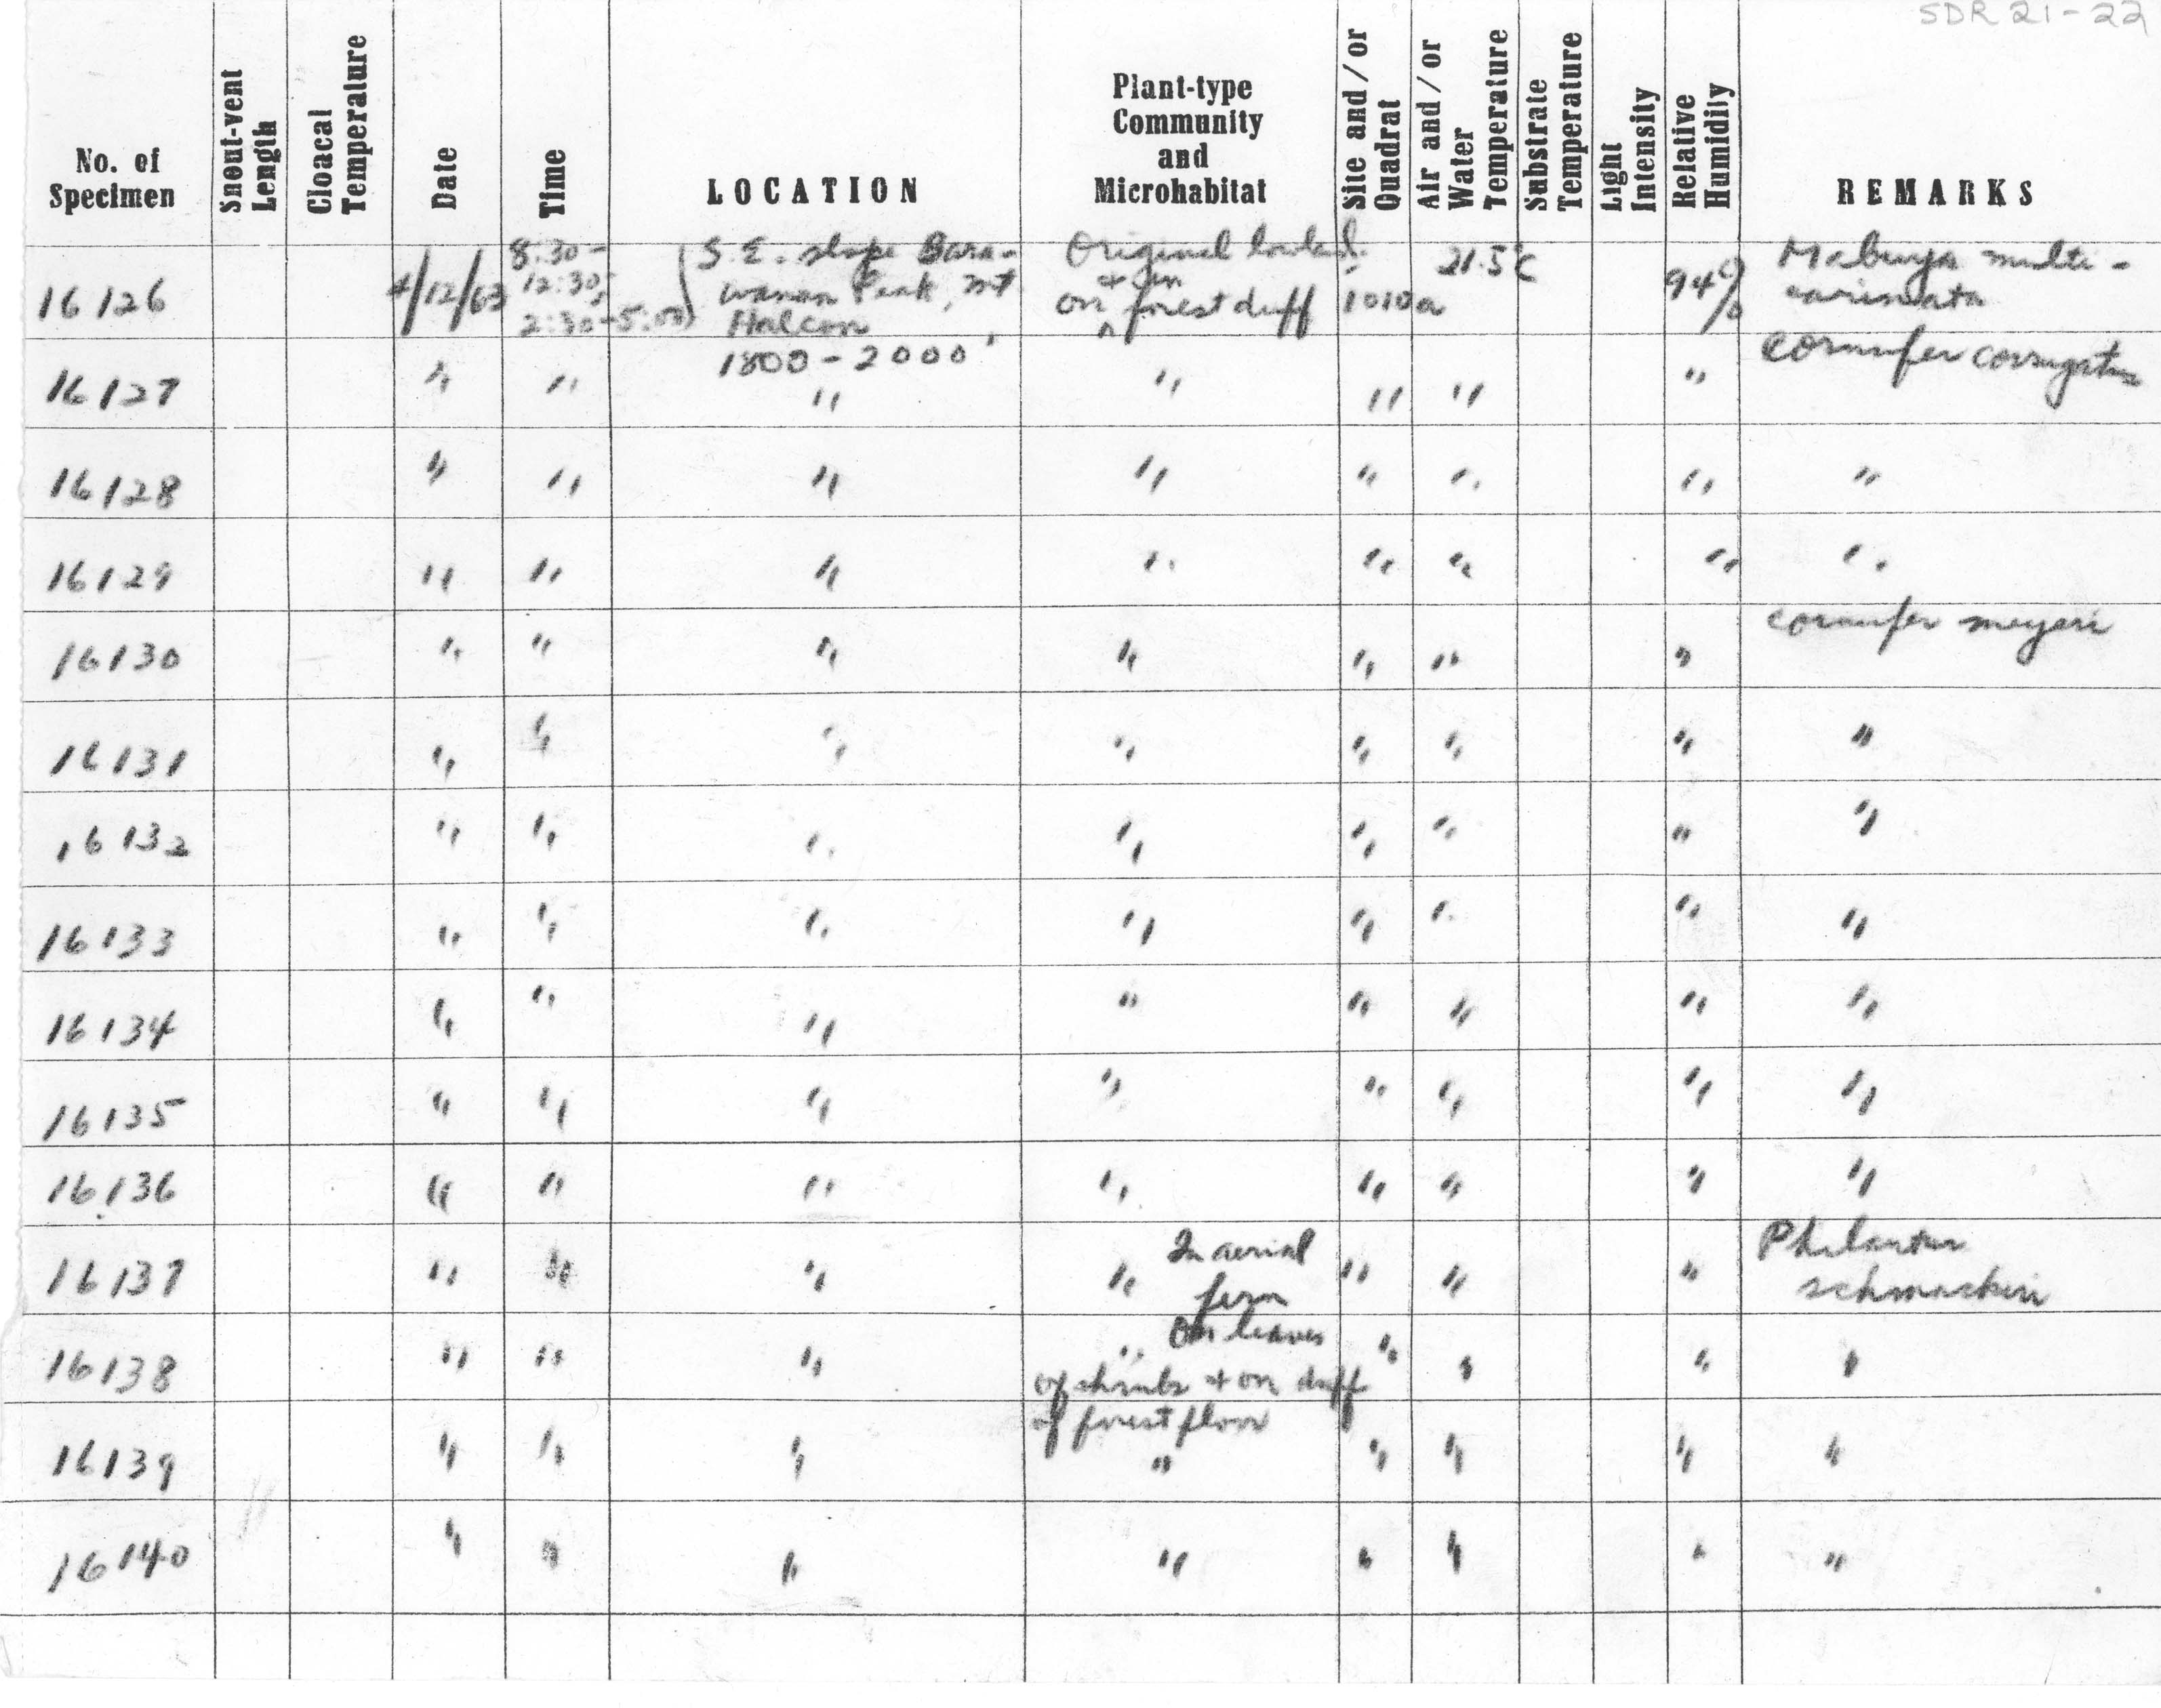 SDR 21-22
No. of Specimen | Snout-vent Length | Cloacal Temperature | Date | Time | LOCATION | Plant-type Community and Microhabitat | Site and/or Quadrat | Air and/or Water Temperature | Substrate Temperature | Light Intensity | Relative Humidity | REMARKS
16126 | | | 4/12/63 | 8:30-12:30; 2:30-5:00 | S.E. slope Bara-wanan Peak, Mt Halcon 1800-2000' | Original lowland; on + in forest duff | 1010a | 21.5°C | | | 94% | Mabuya multi-carinata
16127 | | | " | " | " | " | " | " | | | " | Cornufer corrugatus
16128 | | | " | " | " | " | " | " | | | " | "
16129 | | | " | " | " | " | " | " | | | " | "
16130 | | | " | " | " | " | " | " | | | " | Cornufer meyeri
16131 | | | " | " | " | " | " | " | | | " | "
16132 | | | " | " | " | " | " | " | | | " | "
16133 | | | " | " | " | " | " | " | | | " | "
16134 | | | " | " | " | " | " | " | | | " | "
16135 | | | " | " | " | " | " | " | | | " | "
16136 | | | " | " | " | " | " | " | | | " | "
16137 | | | " | " | " | " In aerial fern | " | " | | | " | Philautus schmackeri
16138 | | | " | " | " | " On leaves of shrubs + on duff of forest floor | " | " | | | " | "
16139 | | | " | " | " | " | " | " | | | " | "
16140 | | | " | " | " | " | " | " | | | " | "